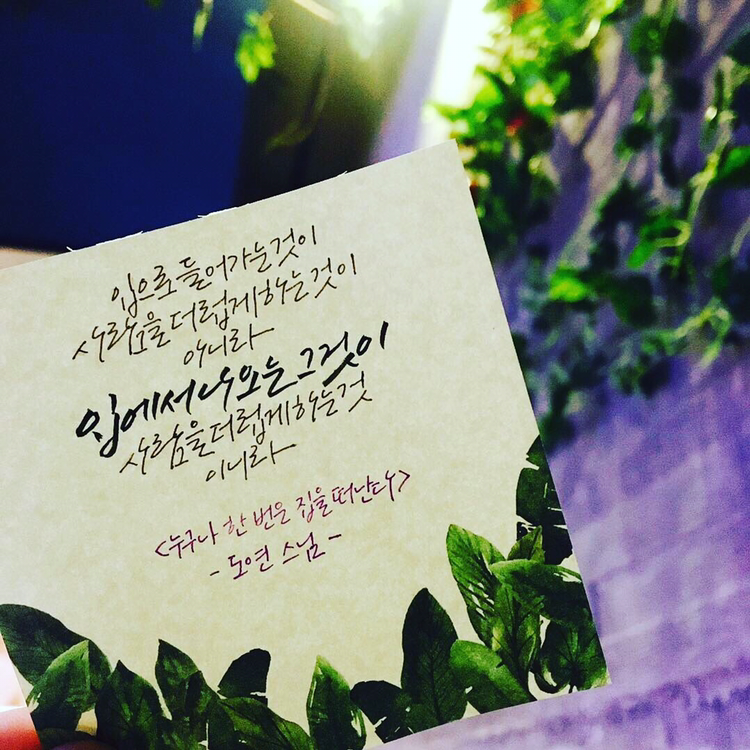 입으로 들어가는 것이
사람을 더럽게 하는 것이
아니라
입에서 나오는 그것이
사람을 더럽게 하는 것
이니라
<누구나 한 번은 집을 떠난다>
- 도연 스님 -